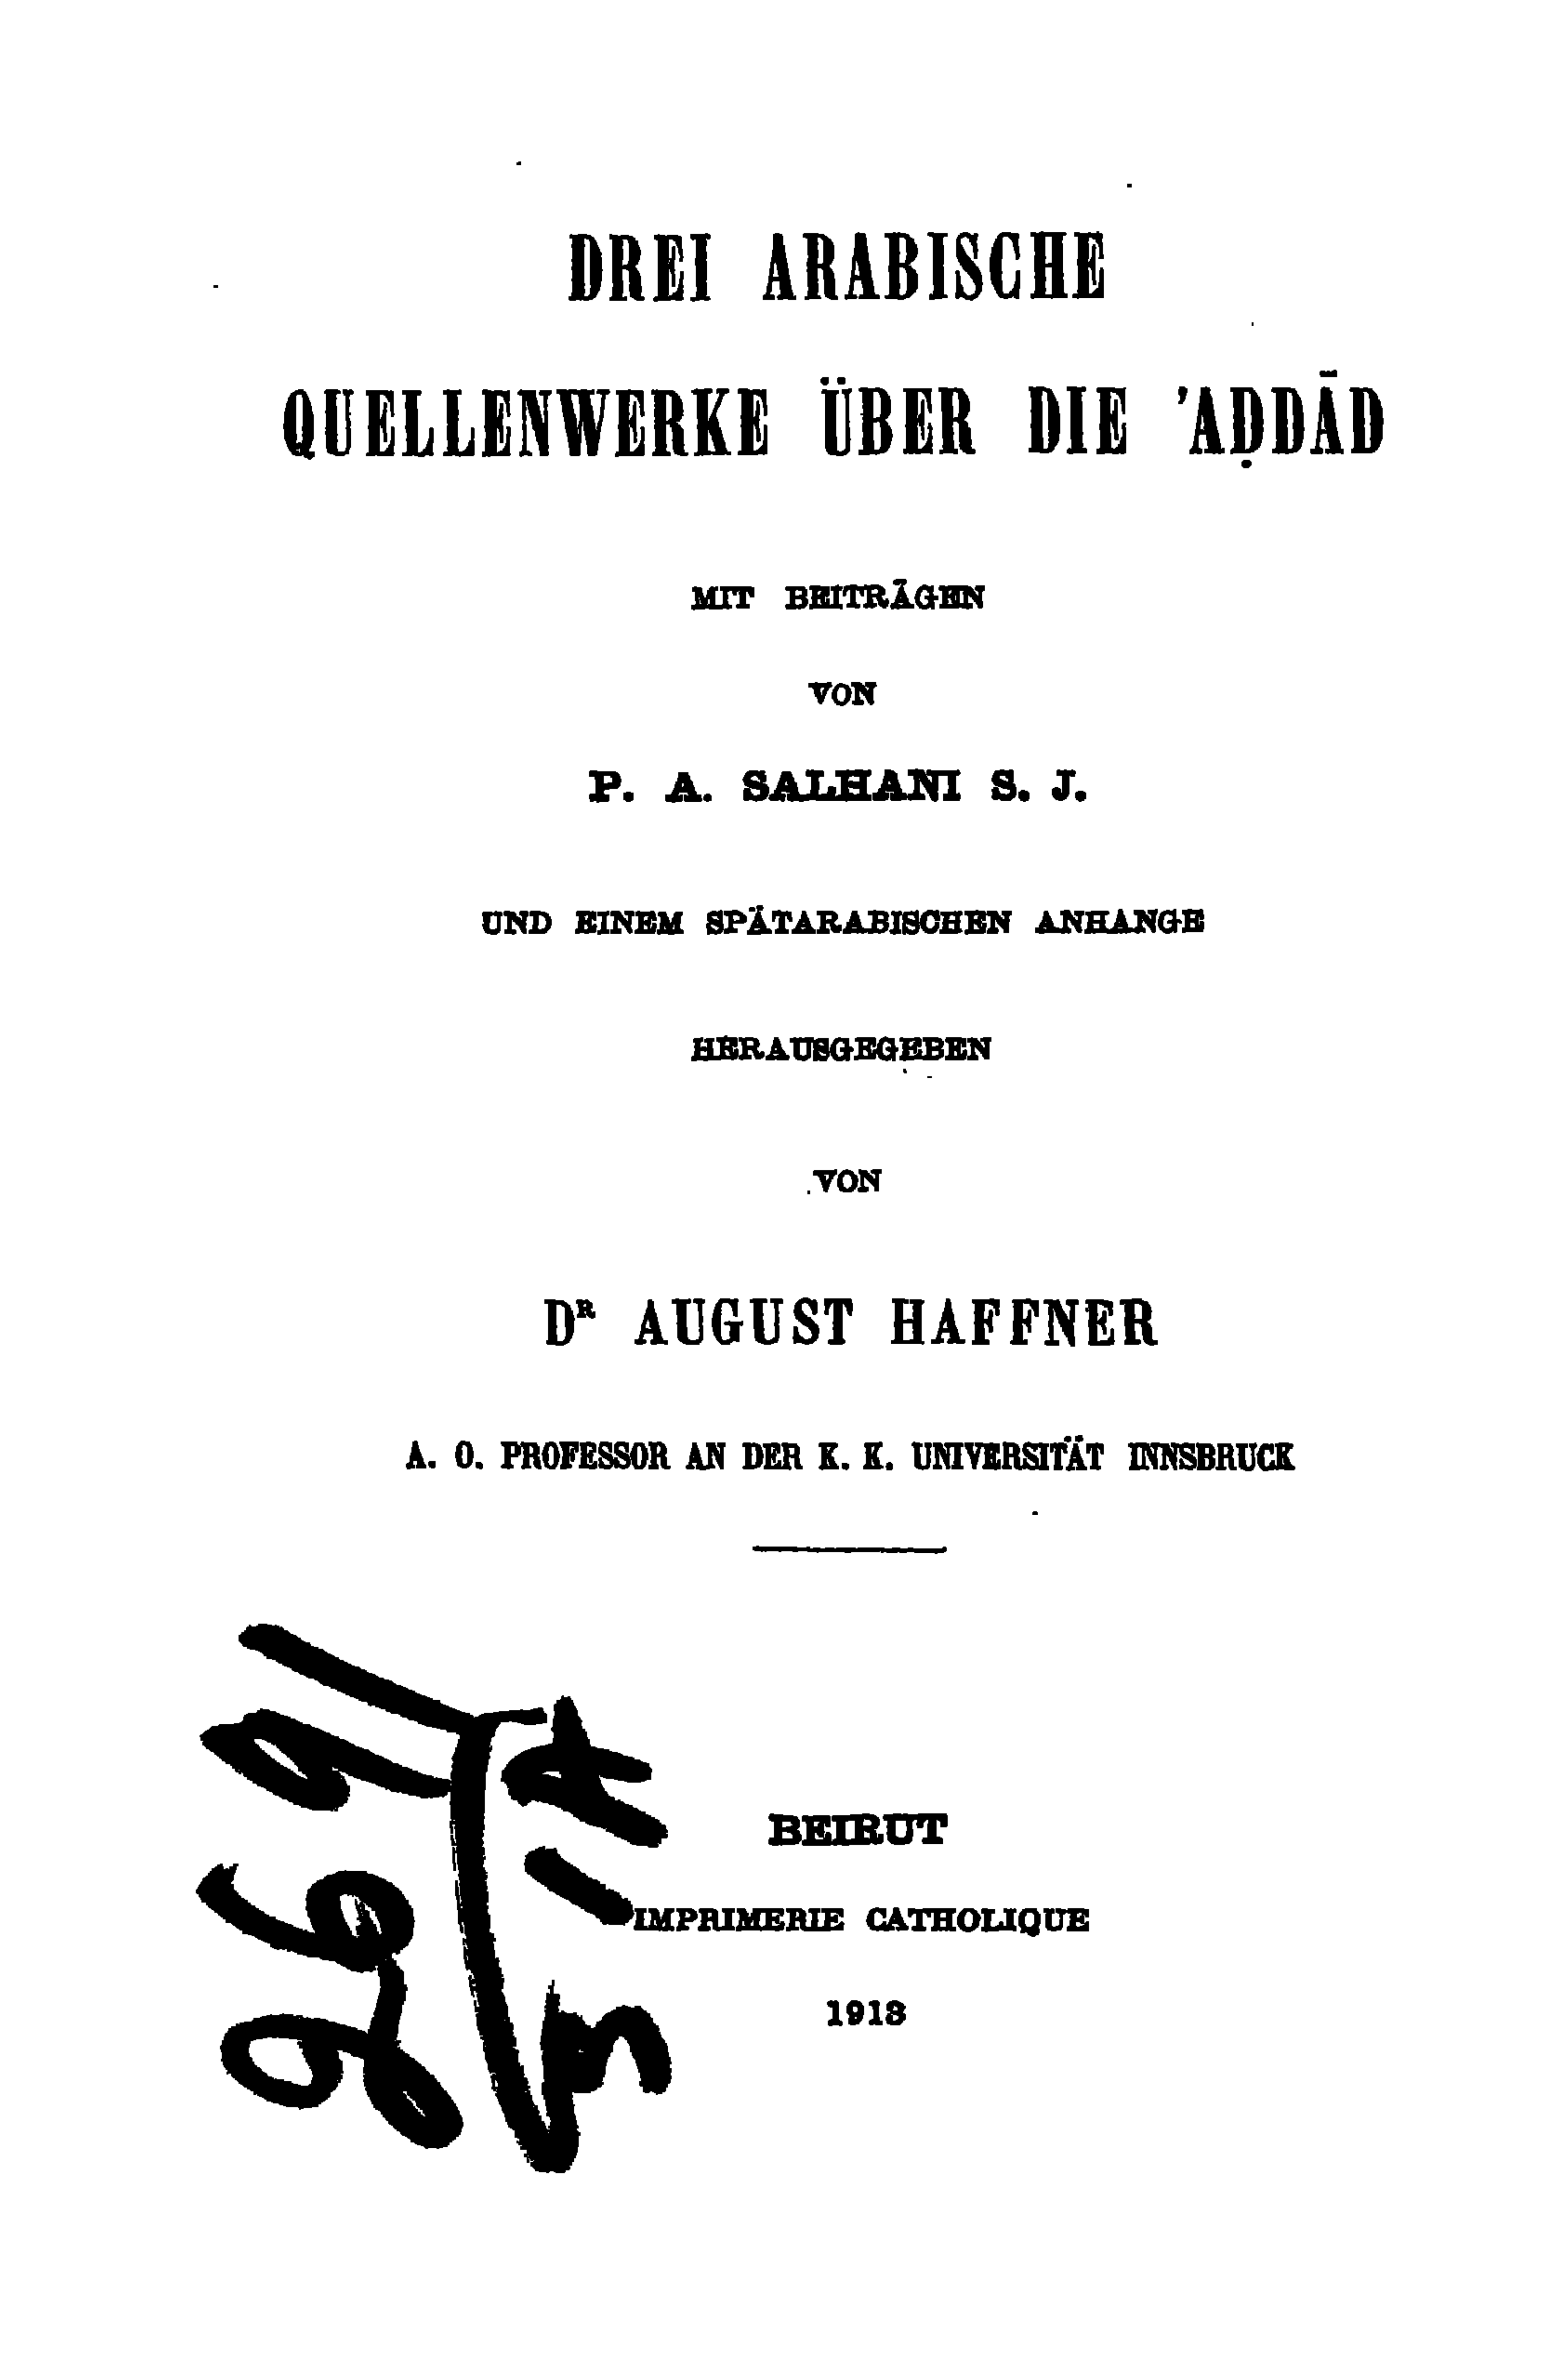 DREI ARABISCHE
QUELLENWERKE ÜBER DIE 'AḌDĀD
MIT BEITRÄGEN
VON
P. A. SALHANI S. J.
UND EINEM SPÄTARABISCHEN ANHANGE
HERAUSGEGEBEN
VON
Dᴿ AUGUST HAFFNER
A. O. PROFESSOR AN DER K. K. UNIVERSITÄT INNSBRUCK
BEIRUT
IMPRIMERIE CATHOLIQUE
1913